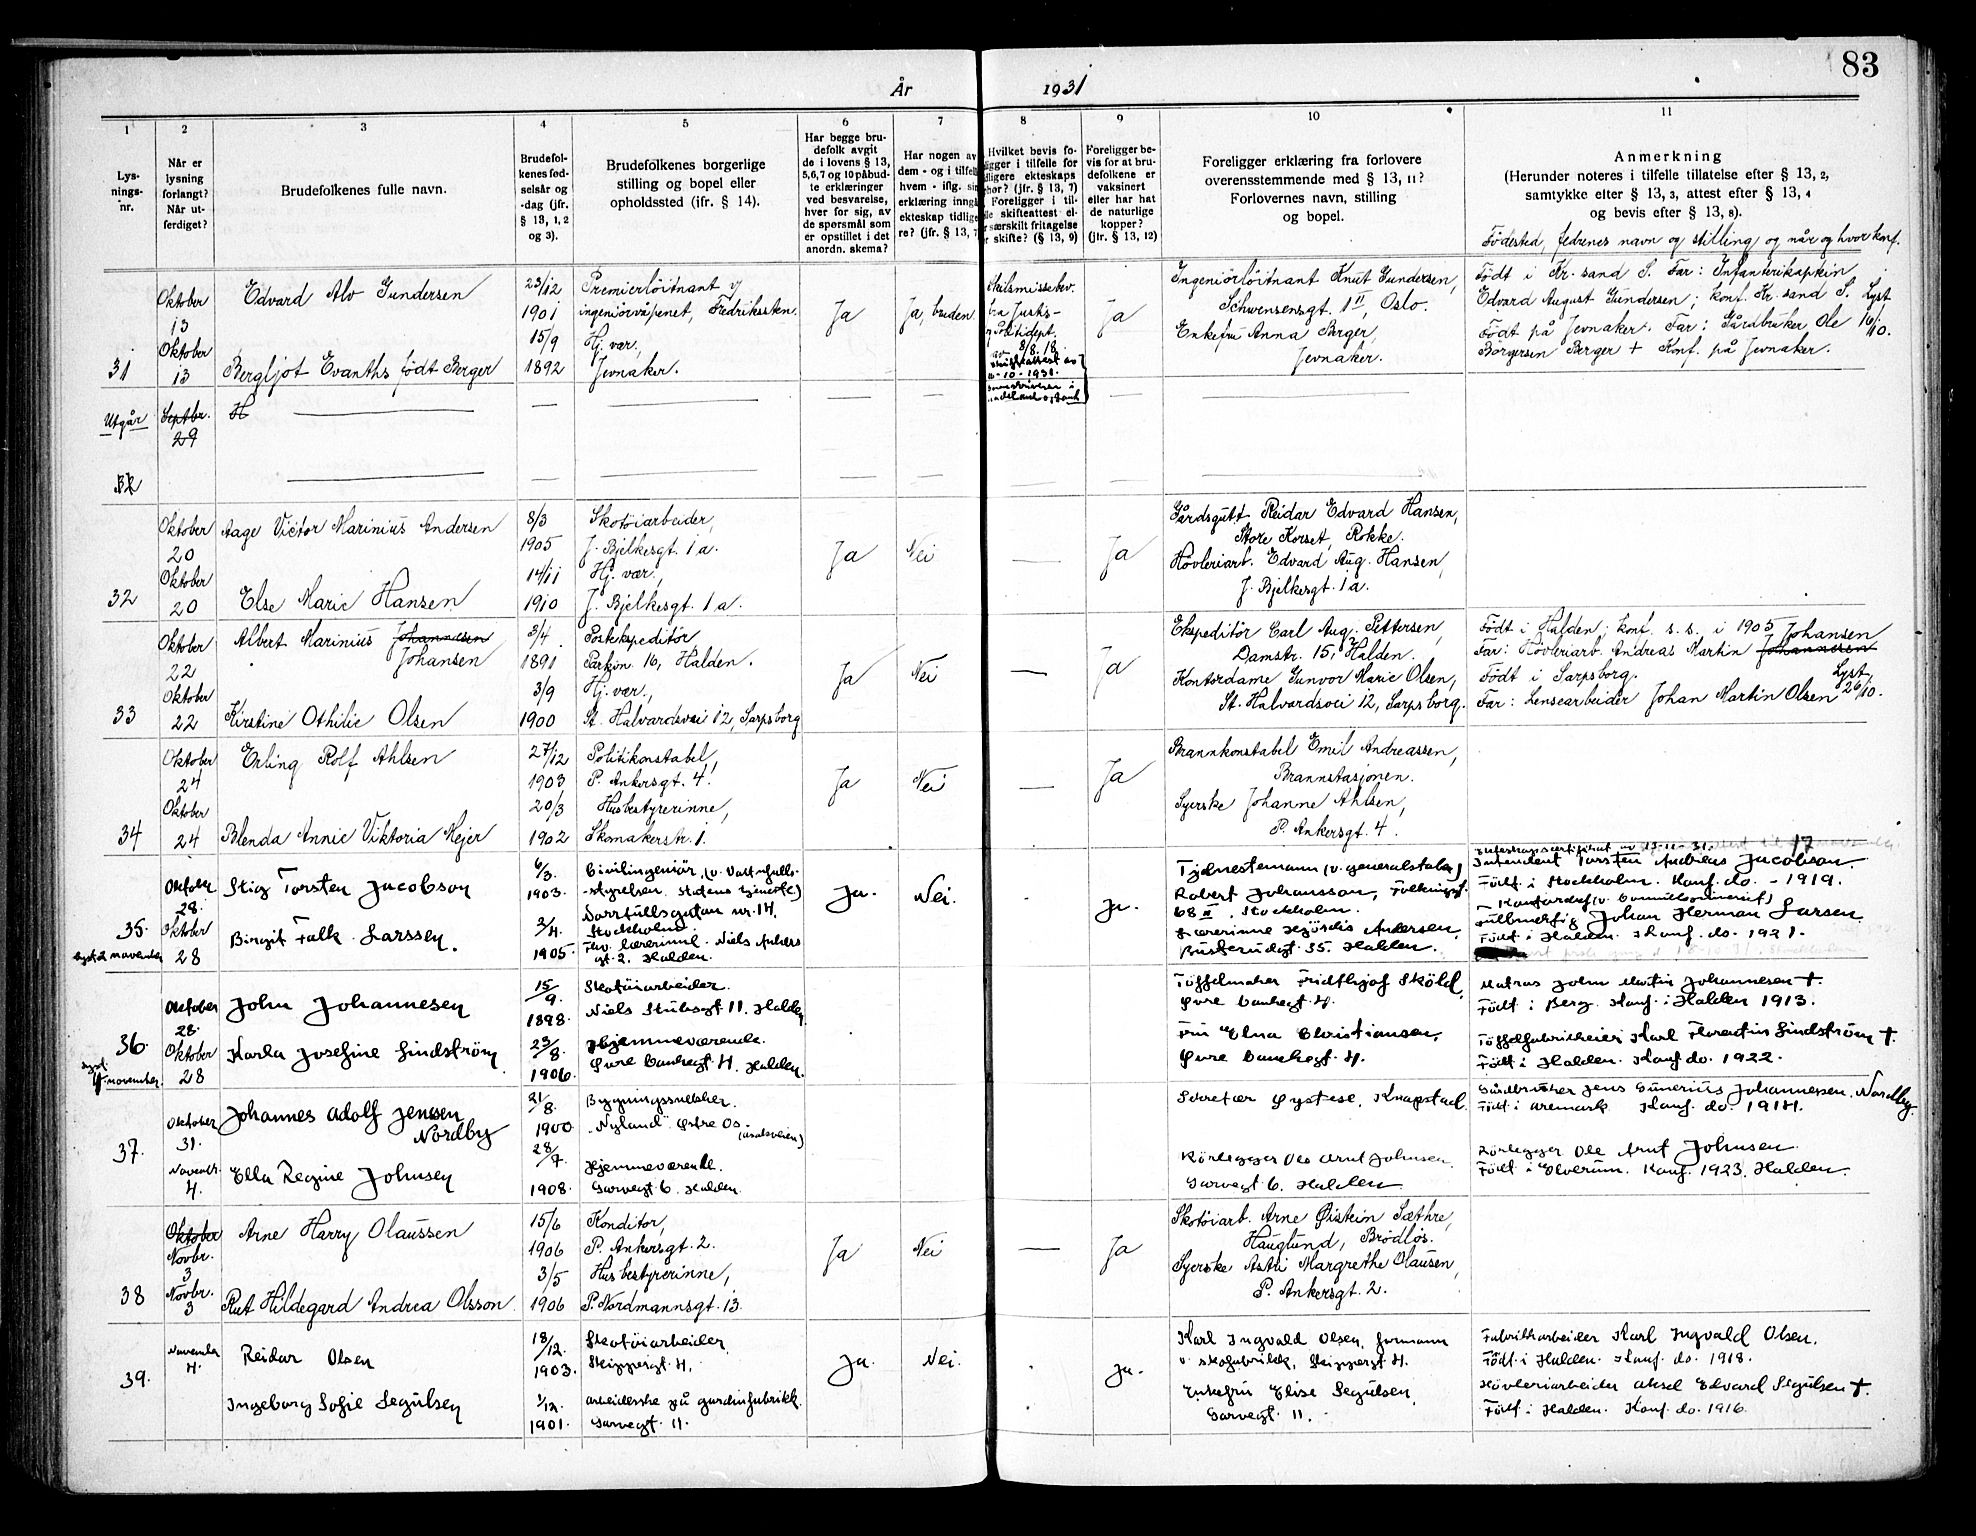 83
År 1931
1 2 3 4 5 6 7 8 9 10 11
Lys-
nings-
nr.
Når er
lysning
forlangt?
Når ut-
ferdiget?
Brudefolkenes fulle navn.
Brudefol-
kenes fød-
selsår og
-dag (jfr.
§ 13, 1, 2
og 3).
Brudefolkenes borgerlige
stilling og bopel eller
opholdssted (ifr. § 14).
Har begge bru-
defolk avgit
de i lovens § 13,
5,6,7 og 10 påbud-
te erklæringer
ved besvarelse,
hver for sig, av
de spørsmål som
er opstillet i det
anordn. skema?
Har nogen av
dem - og i tilfelle
hvem - iflg. sin
erklæring inngå
ekteskap tidlige-
re? (jfr. § 13, 7
Hvilket bevis fo-
ligger i tilfelle for
idligere ekteskaps
ophør? (jfr. § 13, 7)
Foreligger i til-
lle skifteattest el-
r særskilt fritagelse
r skifte? (§ 13, 9)
Foreligger be-
vis for at bru-
defolkene er
vaksinert
eller har hat
de naturlige
kopper?
(jfr. § 13, 12)
Foreligger erklæring fra forlovere
overensstemmende med § 13, 11?
Forlovernes navn, stilling
og bopel.
Anmerkning
(Herunder noteres i tilfelle tillatelse efter § 13, 2,
samtykke efter § 13, 3, attest efter § 13, 4
og bevis efter § 13, 8).
Fødested, fedrenes navn og stilling og når og hvor konf.
31
Oktober
13
Oktober
13
Edvard Alv Gundersen
Bergljot Evanths født Berger
23/12
1901
15/9
1892
Premierløitnant v/
ingeniørvåpenet, Fredriksten.
Hj. vær.,
Jevnaker.
Ja
Ja, bruden.
Skilsmissebev.
fra Justis-
8/8. 18.
Skifteattest av
10-10-1931.
Ja
Ingeniørløitnant Knut Gundersen,
Schwensensgt. 1 II, Oslo.
Enkefru Anna Berger,
Jevnaker.
Født i Kr. sand S. Far: Infanterikaptein
Edvard August Gundersen; konf. Kr. sand S. Lyst
Født på Jevnaker. Far: Gårdbruker Ole 16/10.
Borgersen Berger + Konf. på Jevnaker.
Utgår
Septbr.
29
H
32
Oktober
20
Oktober
20
Aage Victor Marinius Andersen
Else Marie Hansen
8/3
1905
14/11
1910
Skotøiarbeider,
J. Bjelkesgt. 1 a.
Hj. vær.,
J. Bjelkesgt. 1 a.
Ja
Nei
—
Ja
Gårdsgutt Reidar Edvard Hansen,
Store Korset, Rokke.
Høvleriarb. Edvard Aug. Hansen,
J. Bjelkesgt. 1 a.
33
Oktober
22
Oktober
22
Albert Marinius Johannesen
Johansen
Kirstine Othilie Olsen
3/4
1891
3/9
1900
Postekspeditør
Parkvn. 16, Halden.
Hj. vær.,
St. Halvardsvei 12, Sarpsborg
Ja
Nei
—
Ja
Ekspeditør Carl Aug. Pettersen,
Damstr. 15, Halden.
Kontordame Gunvor Marie Olsen,
St. Halvardsvei 12, Sarpsborg.
Født i Halden; konf. s. s. i 1905 Johansen
Far: Høvleriarb. Andreas Martin Johannesen
Født i Sarpsborg. Lyst,
Far: Lensearbeider Johan Martin Olsen 26/10.
34
Oktober
24
Oktober
24
Erling Rolf Ahlsen
Blenda Annie Viktoria Mejer
27/12
1903
20/3
1902
Politikonstabel,
P. Ankersgt. 4.
Husbestyrerinne,
Skomakerstr. 1.
Ja
Nei
—
Ja
Brannkonstabel Emil Andreassen,
Brannstasjonen.
Syerske Johanne Ahlsen,
P. Ankersgt. 4.
35.
lyst 2 november
Oktober
28.
Oktober
28
Stig Torsten Jacobson
Birgit Falk-Larssen.
6/3.
1903.
3/4.
1905.
Civilingeniør, (v. Vattenfalls-
styrelsen, statens tjeneste)
Norrtullsgatan nr. 14,
Stockholm.
Frk. lærerinne. Niels Ankers
gt. 2. Halden.
Ja.
Nei.
Ja.
Tjenestemann (v. generalstaben)
Robert Johansson, Folkungagt.
68 II, Stockholm.
Lærerinne Hjördis Andersen,
Buskerudgt. 35. Halden.
Intendent Torsten Andreas Jacobson
Født i Stockholm. Konf. do. - 1919.
Johan Herman Larsen
Født i Halden. Konf. do. 1921.
36.
lyst
4 november.
Oktober
28.
Oktober
28
John Johannesen
Karla Josefine Lindström
15/9.
1898.
23/8.
1906.
Skotøiarbeider.
Niels Stubsgt. 11. Halden.
Hjemmeværende.
Øvre Bankegt. 4. Halden.
Tøffelmaker Fridthjof Sköld,
Øvre Bankegt. 4.
Fru Elna Christiansen,
Øvre Bankegt. 4.
Matros John Martin Johannesen +
Født i Berg. Konf. i Halden 1913.
Tøffelfabrikeier Karl Florentin Lindström +.
Født i Halden. Konf. do. 1922.
37.
Oktober
31.
Novembr.
4.
Johannes Adolf Jenssen
Nordby
Ella Regine Johnsen
21/8.
1900.
28/7.
1908.
Bygningssnekker.
"Nyland" Østre Os.
Hjemmeværende.
Garvergt 6. Halden.
Sekretær Øystese, Knapstad.
Rørlegger Ole Arnt Johnsen.
Garvergt 6. Halden
Gårdbruker Jens Gunerius Johannessen, Nordby.
Født i Aremark Konf. do. 1914.
Rørlegger Ole Arnt Johnsen.
Født i Elverum. Konf. 1923. Halden.
38
Oktober
Novbr.
3
Novbr.
3
Arne Harry Olaussen
Rut Hildegard Andrea Olsson.
15/6
1906
3/5
1906
Konditor,
P. Ankersgt. 2.
Husbestyrerinne,
P. Nordmannsgt. 13.
Ja
Nei
—
Ja
Skotøiarb. Arne Øistein Sæthre,
Hauglund, Brødløs.
Syerske Astri Margrethe Olausen,
P. Ankersgt. 2.
39.
November
4.
Reidar Olsen
Ingeborg Sofie Segulsen
18/12.
1903.
1/12.
1901.
Skotøiarbeider.
Skippergt. 4.
Arbeiderske på gardinfabrikk.
Garvergt 11.
Ja.
Nei.
Ja.
Karl Ingvald Olsen, formann
v. skofabrikk, Skippergt. 4.
Enkefru Elise Segulsen,
Garvergt 11.
Fabrikkarbeider Karl Ingvald Olsen.
Født i Halden. Konf. do. 1918.
Høvleriarbeider Aksel Edvard Segulsen +.
Født i Halden. Konf. do. 1916.